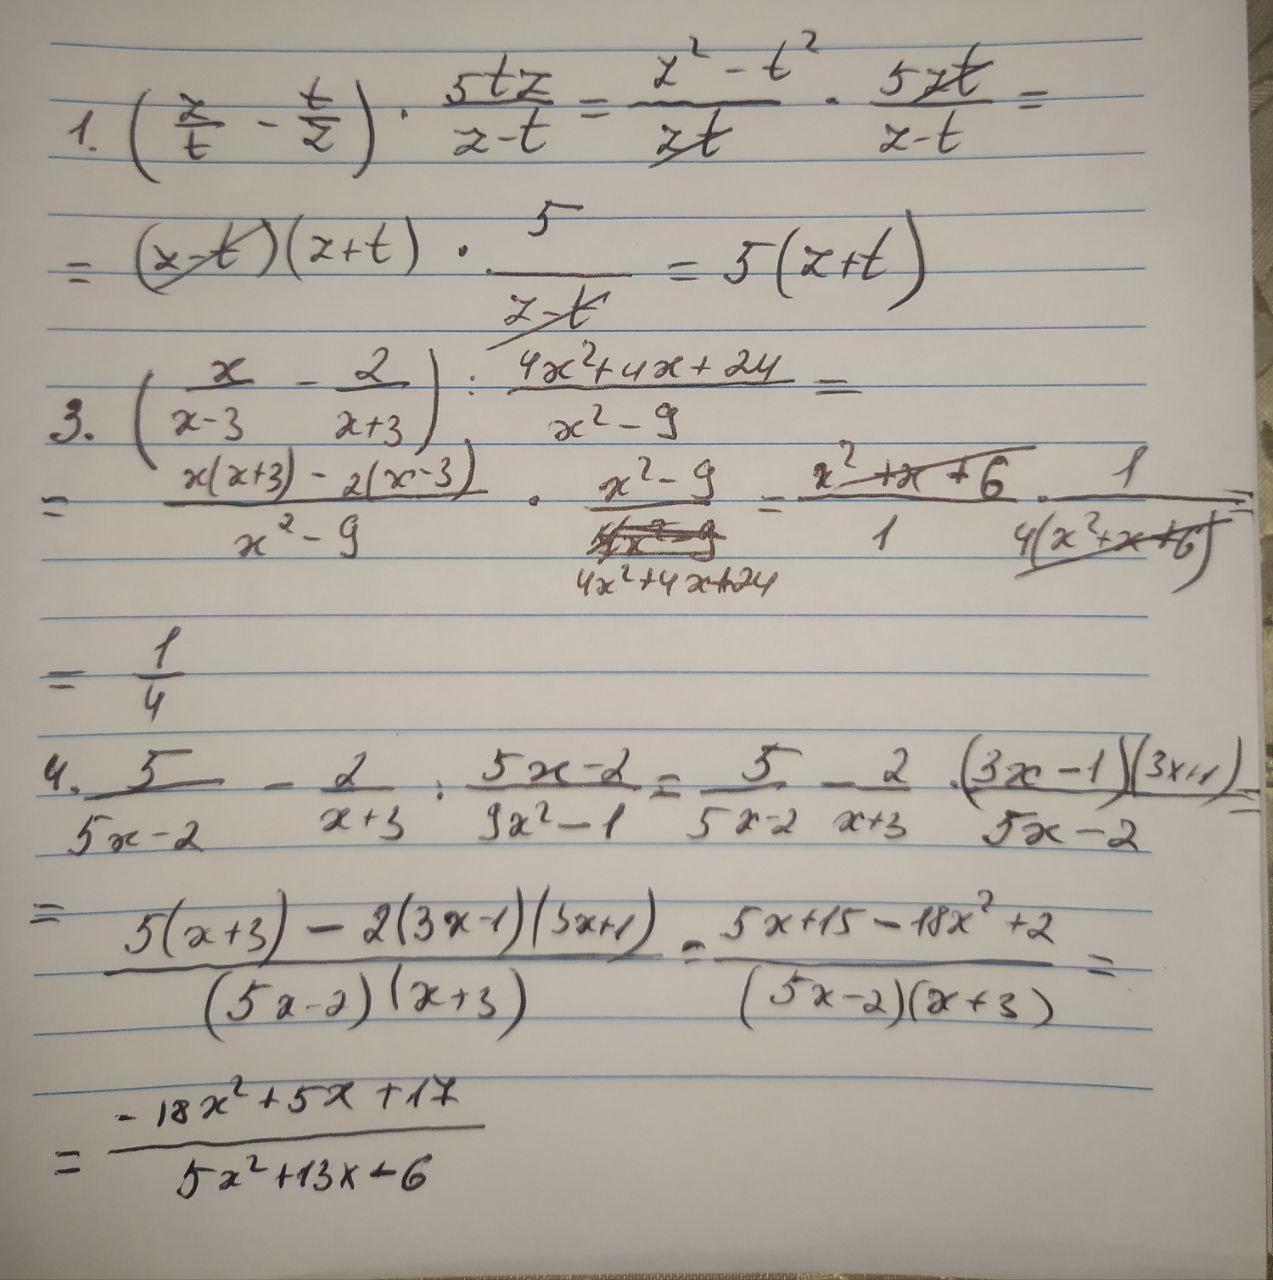 1. (z/t - t/z) · 5tz/(z-t) = (z² - t²)/(zt) · 5zt/(z-t) =
= (z-t)(z+t) · 5/(z-t) = 5(z+t)
3. (x/(x-3) - 2/(x+3)) : (4x²+4x+24)/(x²-9) =
= (x(x+3) - 2(x-3))/(x²-9) · (x²-9)/(4x²+4x+24) = (x²+x+6)/1 · 1/(4(x²+x+6)) =
= 1/4
4. 5/(5x-2) - 2/(x+3) : (5x-2)/(9x²-1) = 5/(5x-2) - 2/(x+3) · (3x-1)(3x+1)/(5x-2) =
= (5(x+3) - 2(3x-1)(3x+1))/((5x-2)(x+3)) = (5x+15-18x²+2)/((5x-2)(x+3)) =
= (-18x²+5x+17)/(5x²+13x-6)